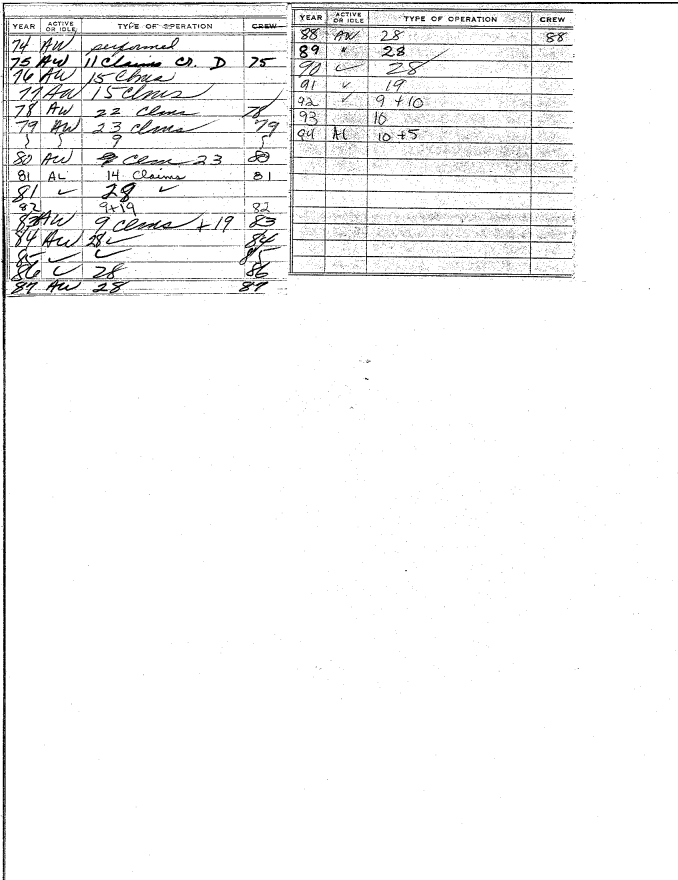 YEAR ACTIVE OR IDLE TYPE OF OPERATION CREW
74 AW performed
75 AW 11 Claims Cr. D 75
76 AW 15 Clms
77 AW 15 Clms
78 AW 22 Clms 78
79 AW 23 Clms 79
} } 9 }
80 AW Clm 23 80
81 AL 14 Claims 81
81 ✓ 28 ✓
82 9+19 82
83 AW 9 Clms + 19 83
84 AW 28 ✓ 84
85 ✓ ✓ 85
86 ✓ 28 86
87 AW 28 87
YEAR ACTIVE OR IDLE TYPE OF OPERATION CREW
88 AW 28 88
89 " 28
90 ✓ 28
91 ✓ 19
92 ✓ 9 + 10
93 10
94 AL 10 + 5